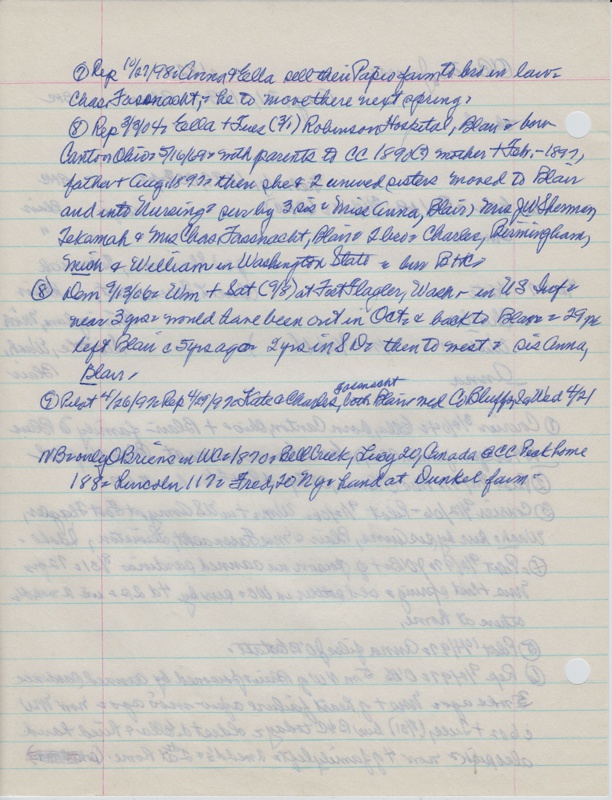 ⑦ Rep 10/27/98: Anna & Ella sell their Papio farm to bro in law -
Chas. Fassnacht, - he to move there next spring.
⑧ Rep 3/9/04: Ella + Tues (3/1) Robinson Hospital, Blair - born
Canton Ohio 5/16/69 - with parents to CC 1890(?) mother + Feb. - 1897,
father + Aug 1897 - then she & 2 unwed sisters moved to Blair
and into Nursing - surv by 3 sis - Miss Anna, Blair, Mrs JW Sherman,
Tekamah & Mrs Chas Fassnacht, Blair - 2 bros - Charles, Birmingham,
Mich & William in Washington State - bur B+C
⑧ Dem 9/13/06: Wm + Sat (9/8) at Fort Flagler, Wash - in US Inf -
near 3 yrs - would have been out in Oct. & back to Blair - 29 -
left Blair c 5 yrs ago - 2 yrs in SD - then to west - sis Anna,
Blair.
⑨ Pilot 4/26/97 - Rep 4/29/97 - Kate & Charles Fassnacht, both Blair wed Co Bluffs, Ia Wed 4/21
NB - only O'Briens in WC - 1870 - Bell Creek, Lucy 20, Canada @ CC Peak home
188 - Lincoln 117 - Fred, 20 NY - hand at Dunkel farm -